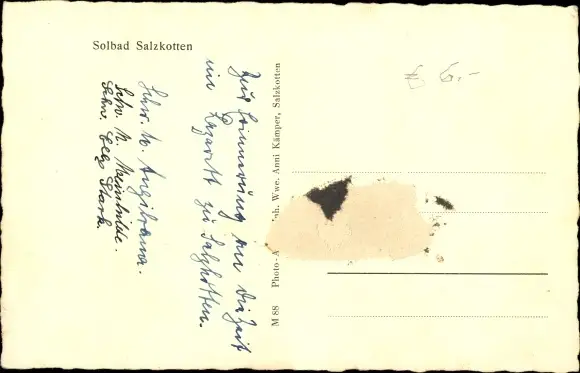 Solbad Salzkotten
Zur Erinnerung an die Zeit
im Lazarett zu Salzkotten.
Schw. M. Angilrama.
Schw. M. Meinhilde.
Schw. Elis Stark.
M 88 Photo- Wwe. Anni Kämper, Salzkotten
€ 6,-